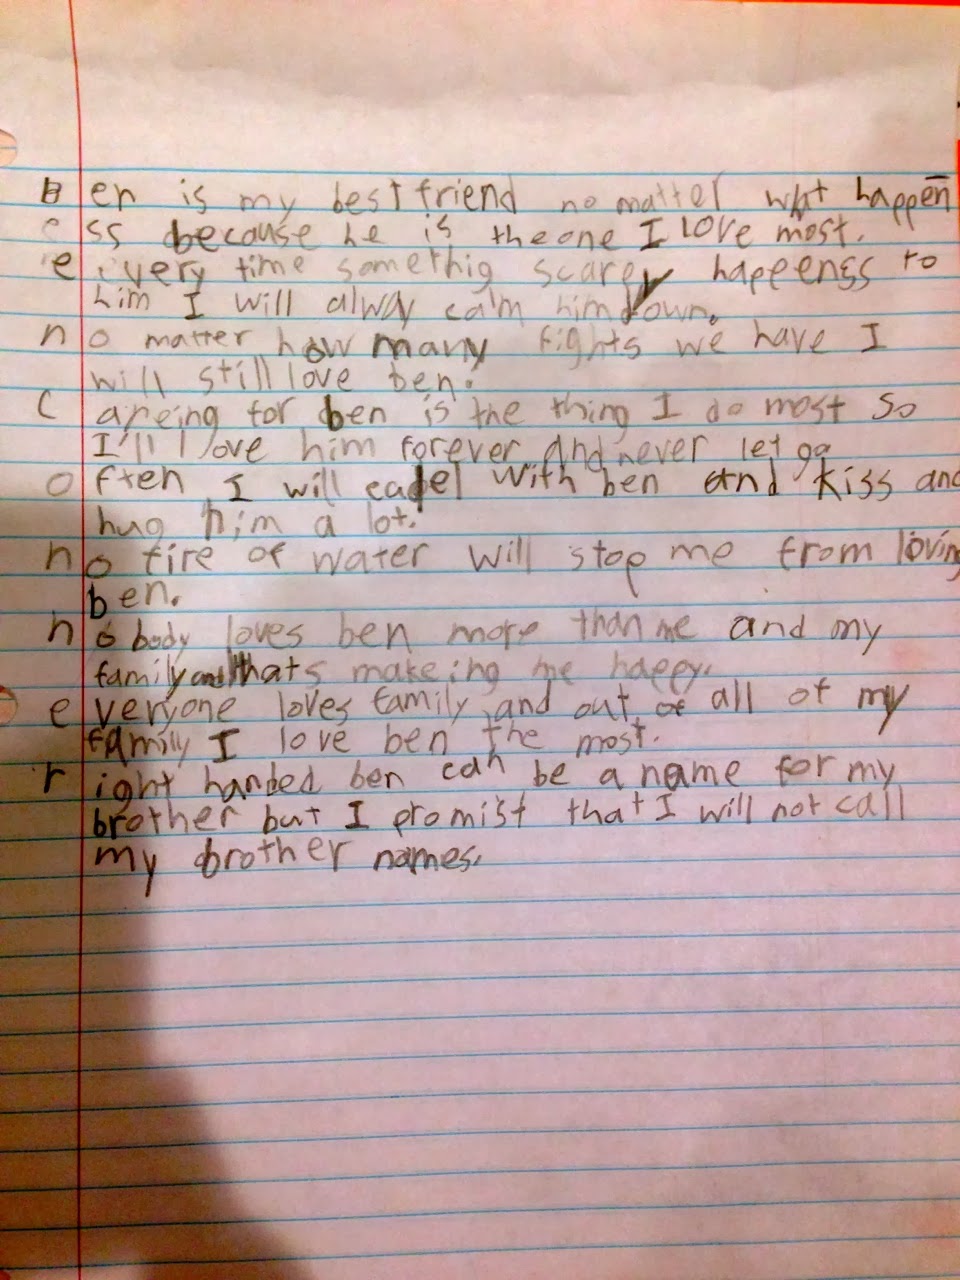 B en is my best friend no matter what happen
ss because he is the one I love most.
e very time somethig scarey happengs to
him I will alway calm him down.
n o matter how many fights we have I
will still love ben.
C areing for ben is the thing I do most so
I'll love him forever and never let go
o ften I will cadel with ben and kiss and
hug him a lot.
n o fire of water will stop me from loving
ben.
n o body loves ben more than me and my
family and thats makeing me happy.
e veryone loves family and out of all of my
family I love ben the most.
r ight handed ben can be a name for my
brother but I promist that I will not call
my brother names.